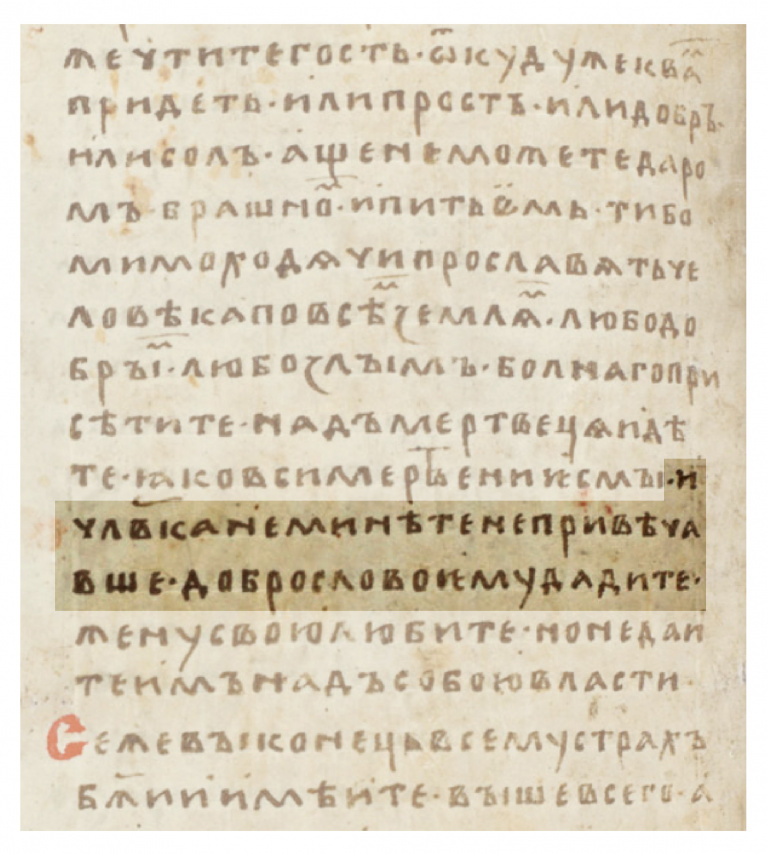 же ч тите гость · ѿкудуже к ва
придеть · или простъ · или добръ ·
или солъ · аще не можете даро
мъ · брашно · и питьемь · ти бо
мимоходѧчи прославѧть че
ловѣка по всѣ землѧ · любо до
бры · любо злымъ · болнаго при
сѣтите · надъ мертвецѧ идѣ
те · ꙗко вси мертвени ѥсмы · и
члвка не минѣте не привѣча
вше · добро слово ѥму дадите ·
жену свою любите · но не даи
те имъ надъ собою власти ·
Се же вы конець всему страхъ
бжии имѣите · выше всего · а